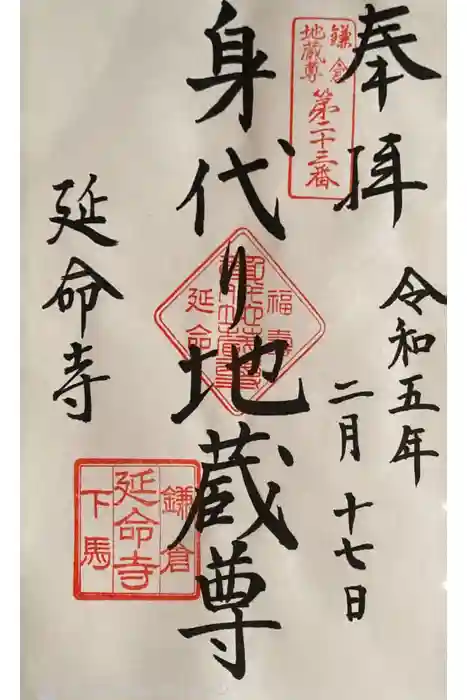 奉拝
令和五年
二月十七日
鎌倉
地蔵尊
第二十三番
身代り地蔵尊
福寿
延命
延命寺
鎌倉
延命寺
下馬